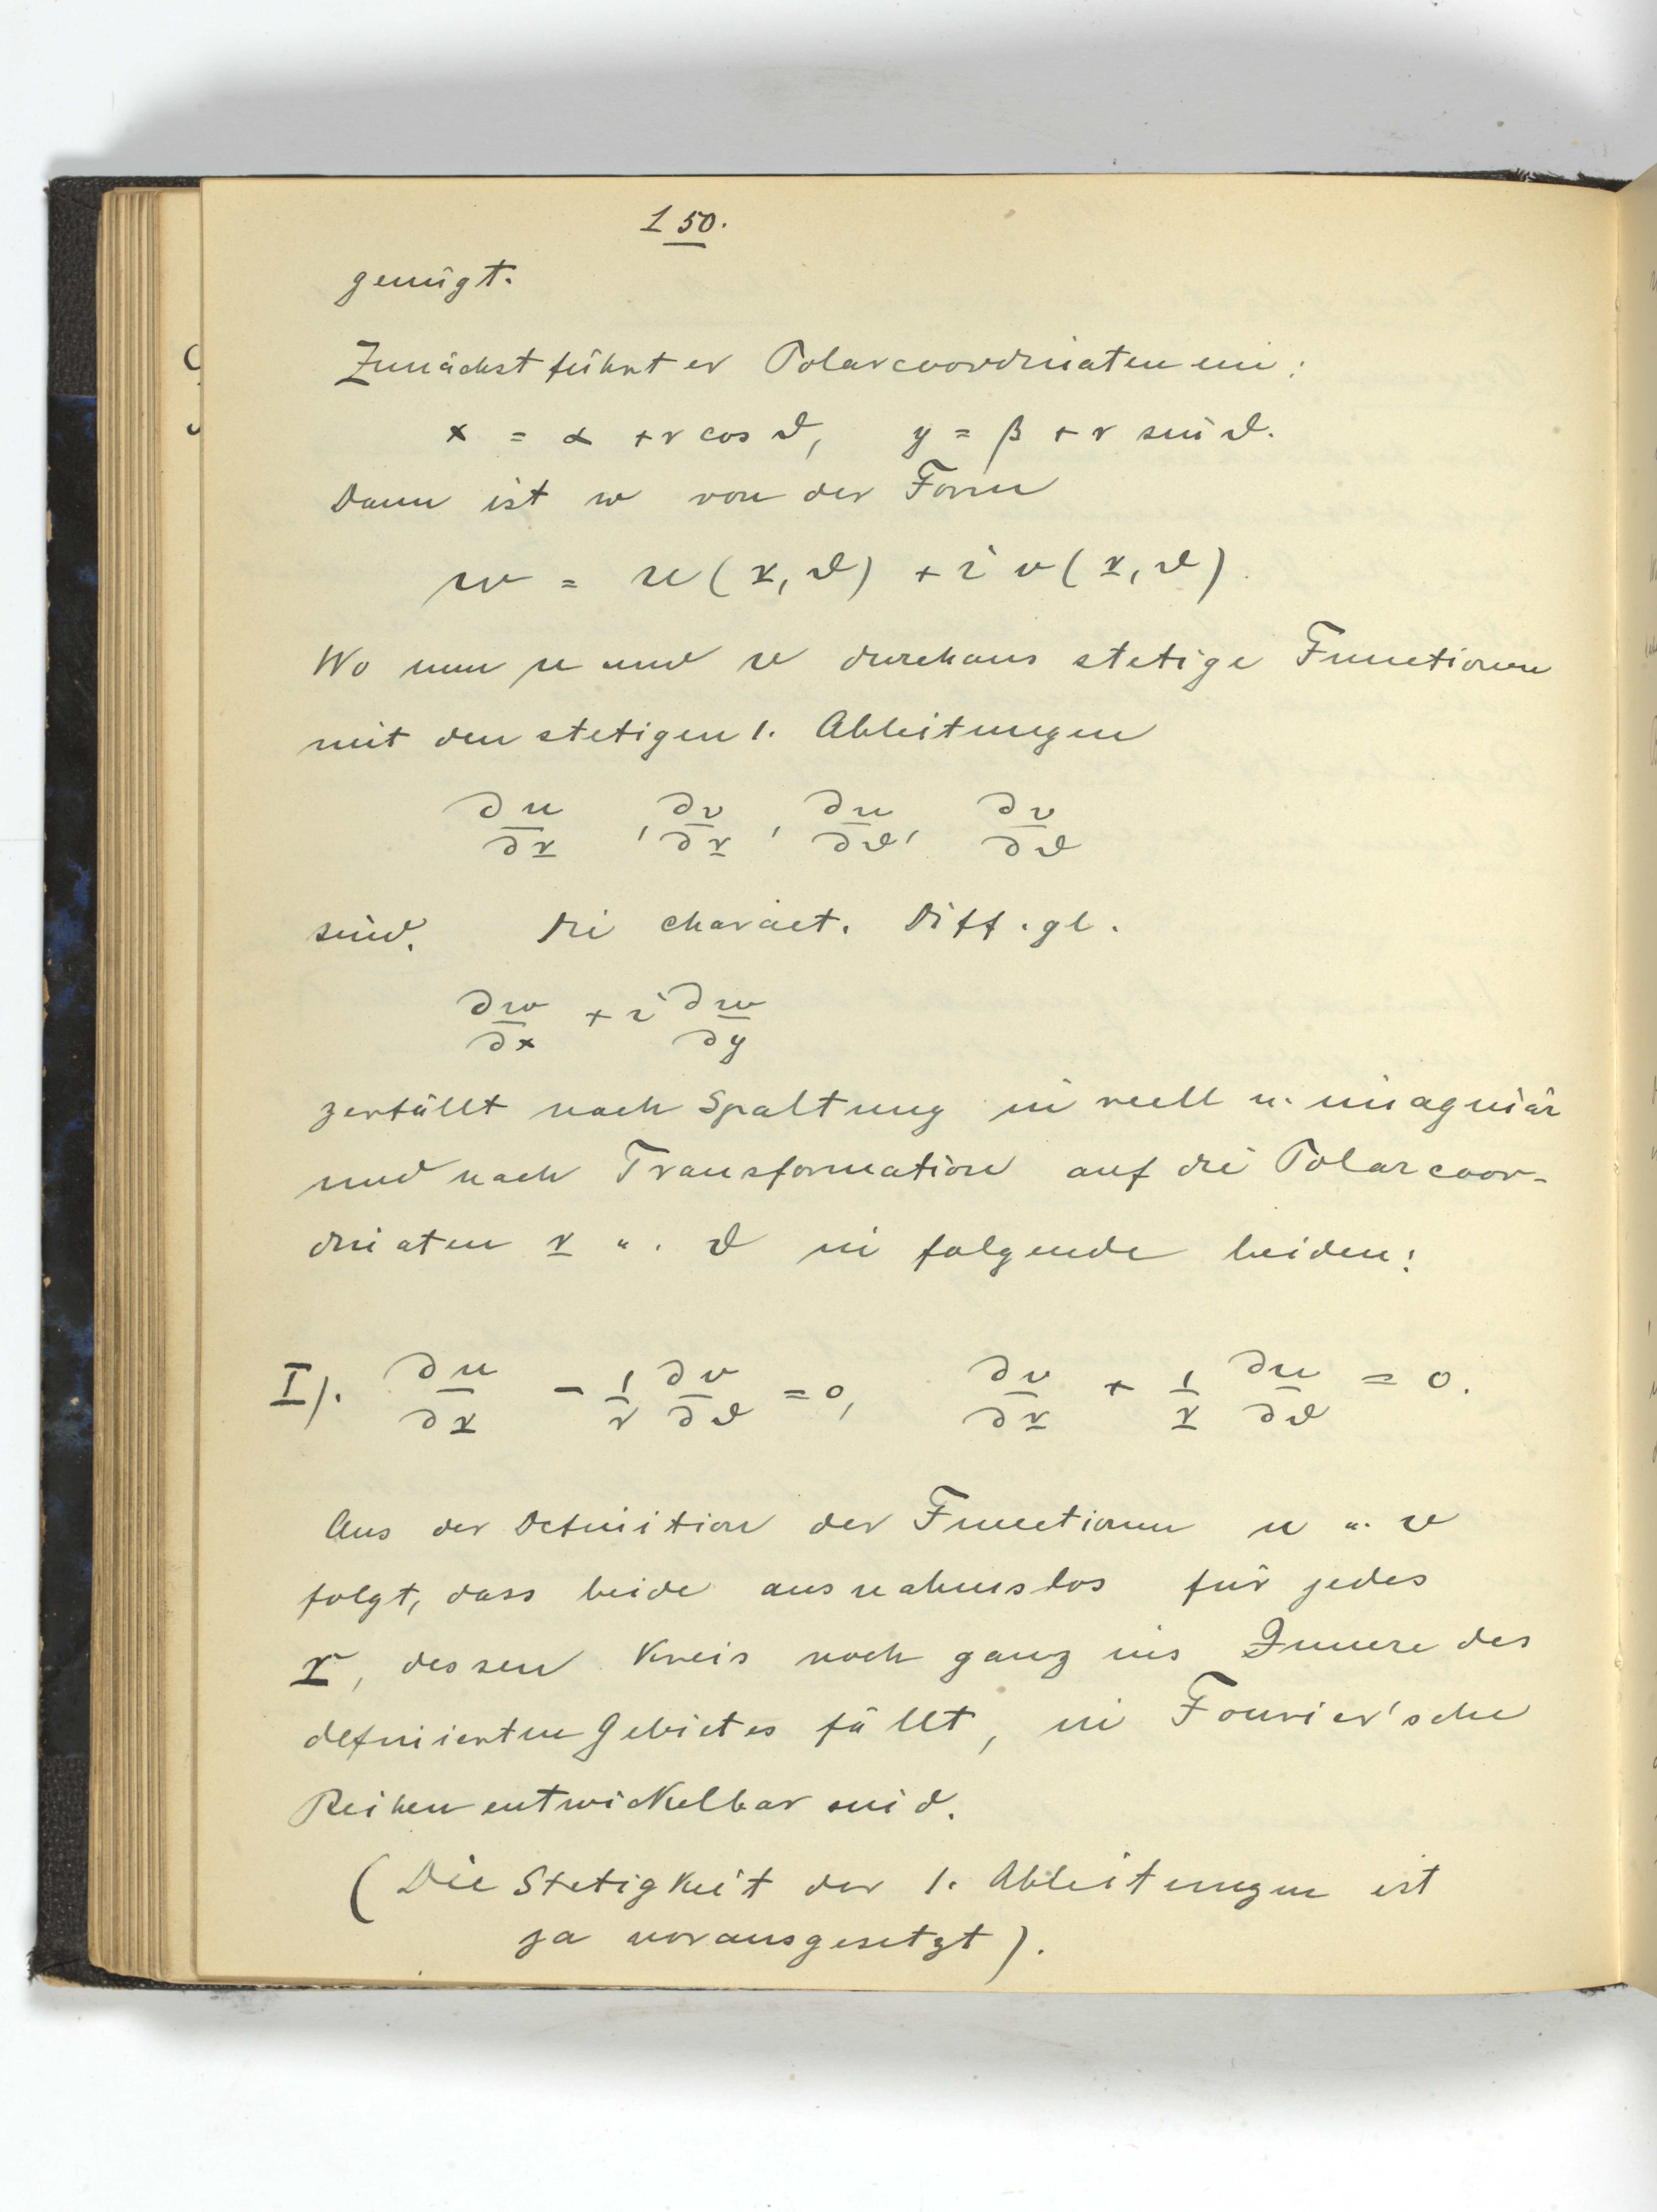 150.
genügt.
Zunächst führt er Polarcoordinaten ein:
x = α + r cos ϑ, y = β + r sin ϑ.
Dann ist w von der Form
w = u(r, ϑ) + i v(r, ϑ).
Wo nun u und v durchaus stetige Functionen
mit den stetigen 1. Ableitungen
∂u/∂r, ∂v/∂r, ∂u/∂ϑ, ∂v/∂ϑ
sind. Die charact. Diff.gl.
∂w/∂x + i ∂w/∂y
zerfällt nach Spaltung in reell u. imaginär
und nach Transformation auf die Polarcoor-
dinaten r u. ϑ in folgende beiden:
I). ∂u/∂r - 1/r ∂v/∂ϑ = 0, ∂v/∂r + 1/r ∂u/∂ϑ = 0.
Aus der Definition der Functionen u u. v
folgt, dass beide ausnahmslos für jedes
r, dessen Kreis noch ganz ins Innere des
definierten Gebietes fällt, in Fourier'sche
Reihen entwickelbar sind.
(Die Stetigkeit der 1. Ableitungen ist
ja vorausgesetzt).